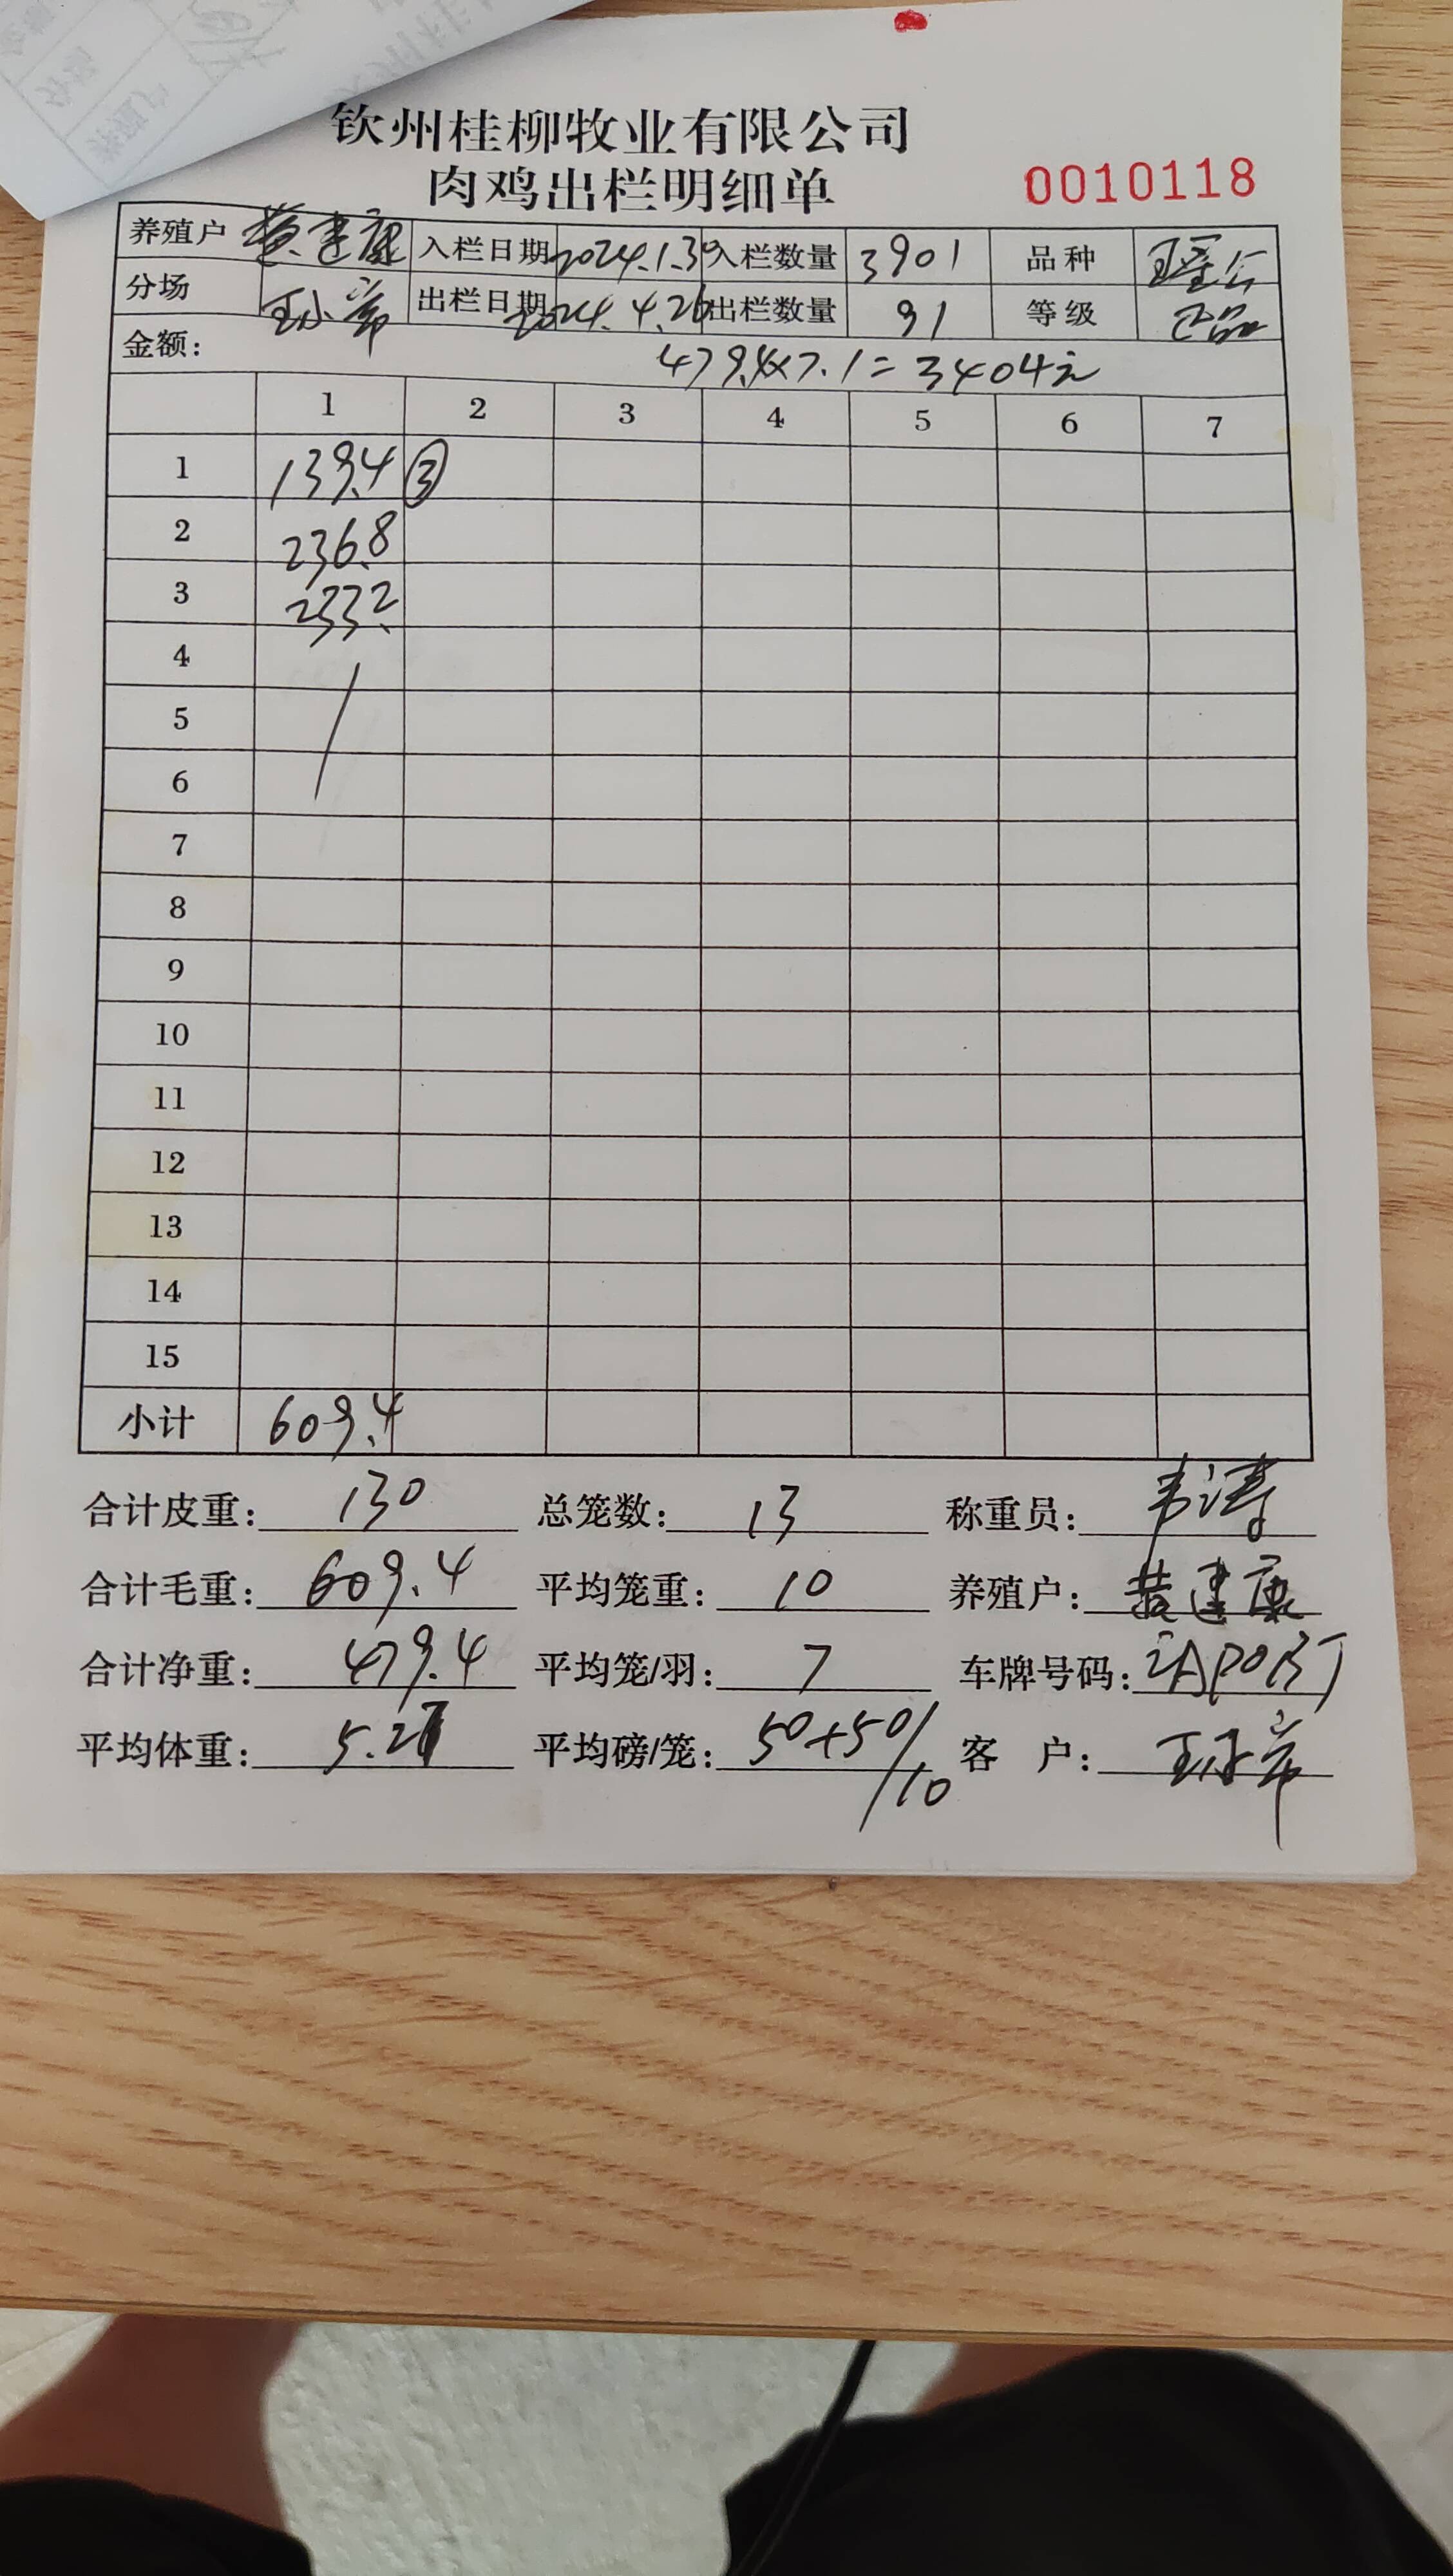 钦州桂柳牧业有限公司
肉鸡出栏明细单
0010118
养殖户 黄建康 入栏日期 2024.1.30 入栏数量 3901 品种 瑶公
分场 出栏日期 2024.4.26 出栏数量 91 等级 正品
金额： 479.4×7.1=3404元
1 2 3 4 5 6 7
1 139.4 ③
2 236.8
3 233.2
4
5
6
7
8
9
10
11
12
13
14
15
小计 609.4
合计皮重： 130 总笼数： 13 称重员： 韦涛
合计毛重： 609.4 平均笼重： 10 养殖户： 黄建康
合计净重： 479.4 平均笼/羽： 7 车牌号码：
平均体重： 5.27 平均磅/笼： 50+50/10 客 户：